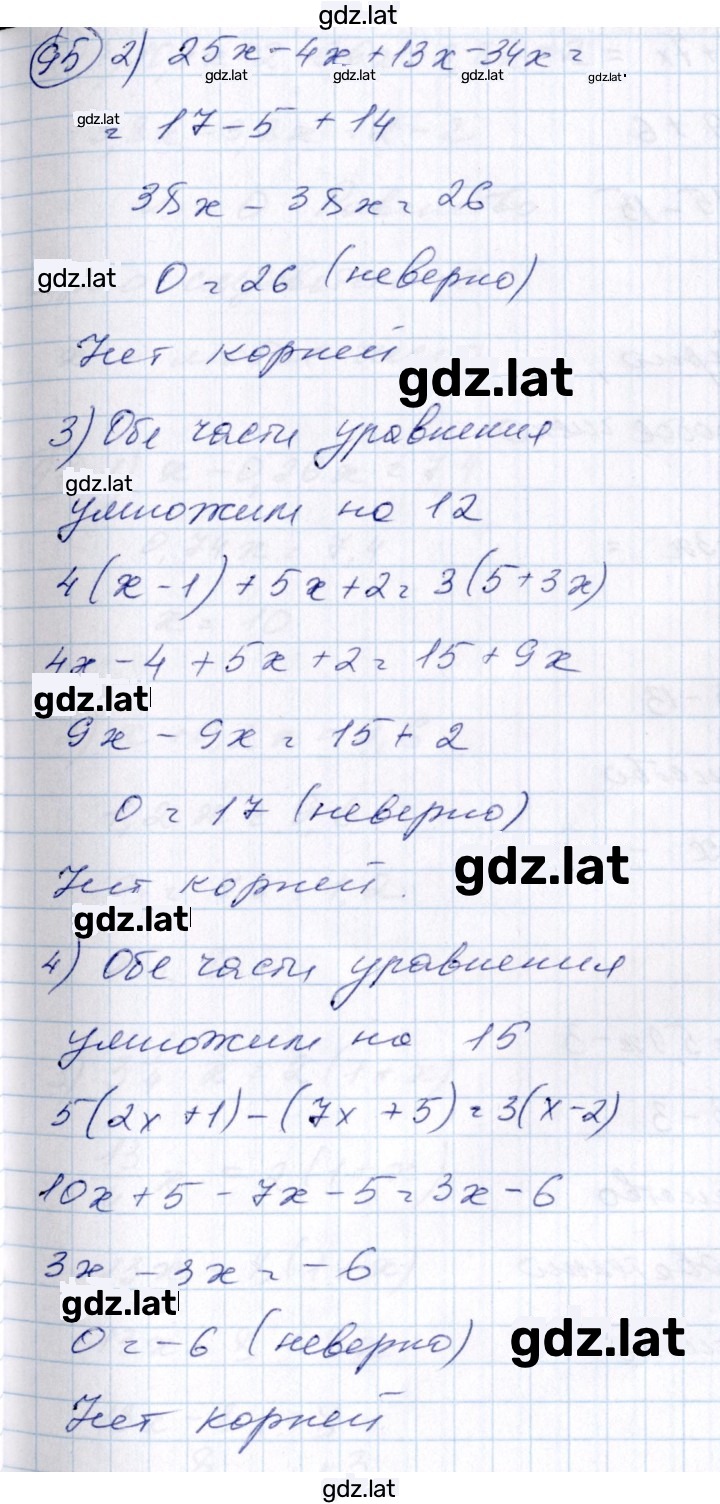 gdz.lat
95 2) 25x - 4x + 13x - 34x =
gdz.lat gdz.lat gdz.lat gdz.lat
gdz.lat
= 17 - 5 + 14
38x - 38x = 26
gdz.lat
0 = 26 (неверно)
Нет корней
gdz.lat
3) Обе части уравнения
gdz.lat
умножим на 12
4(x - 1) + 5x + 2 = 3(5 + 3x)
4x - 4 + 5x + 2 = 15 + 9x
gdz.lat
9x - 9x = 15 + 2
0 = 17 (неверно)
gdz.lat
Нет корней.
gdz.lat
4) Обе части уравнения
умножим на 15
5(2x + 1) - (7x + 5) = 3(x - 2)
10x + 5 - 7x - 5 = 3x - 6
3x - 3x = -6
gdz.lat
0 = -6 (неверно)
gdz.lat
Нет корней
gdz.lat